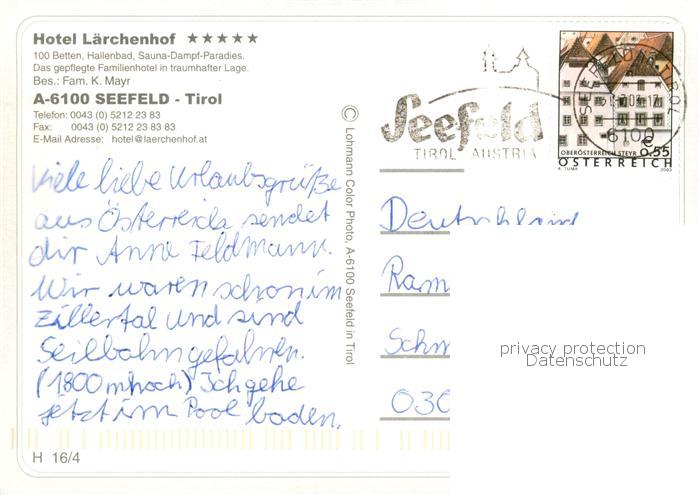 Hotel Lärchenhof ★★★★★
100 Betten, Hallenbad, Sauna-Dampf-Paradies.
Das gepflegte Familienhotel in traumhafter Lage.
Bes.: Fam. K. Mayr
A-6100 SEEFELD - Tirol
Telefon: 0043 (0) 5212 23 83
Fax: 0043 (0) 5212 23 83 83
E-Mail Adresse: hotel@laerchenhof.at
Viele liebe Urlaubsgrüße
aus Österreich sendet
dir Anne Feldmann.
Wir waren schon im
Zillertal und sind
Seilbahn gefahren.
(1800 m hoch) Ich gehe
jetzt im Pool baden.
H 16/4
© Lohmann Color Photo, A-6100 Seefeld in Tirol
Seefeld
TIROL AUSTRIA
6100
OBERÖSTERREICH STEYR €0.55
ÖSTERREICH
A. TUMA 2003
Deutschland
Ram
Schm
030
privacy protection
Datenschutz